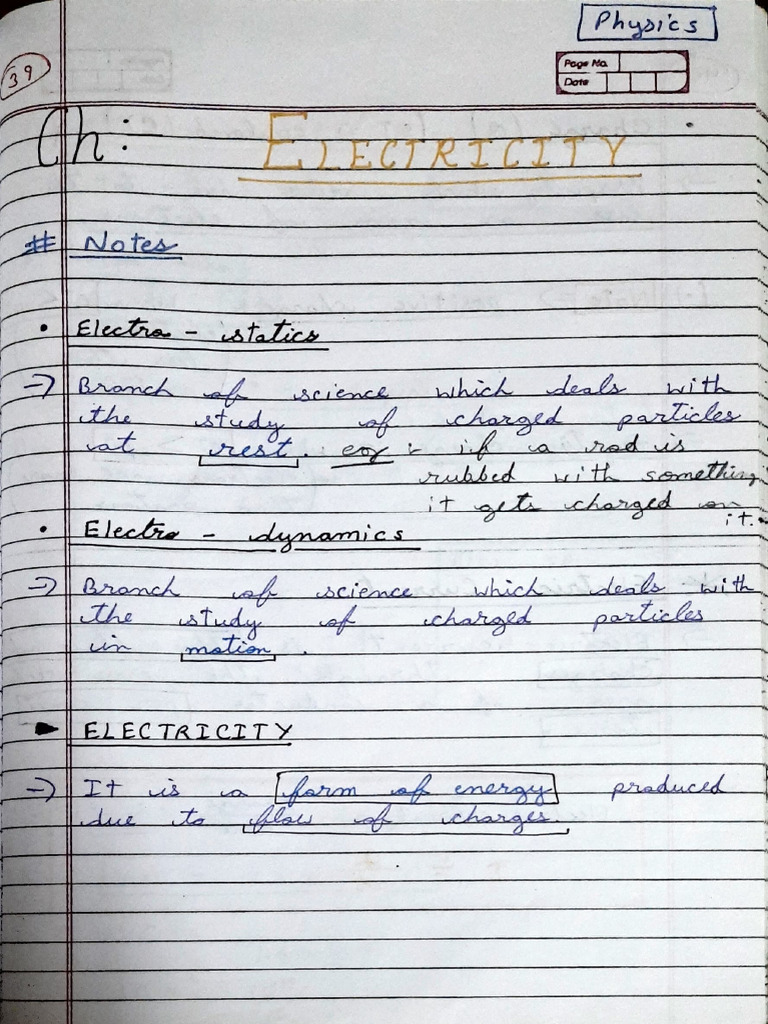 Physics
39
Page No.
Date
Ch:- ELECTRICITY
# Notes
• Electro - statics
→ Branch of science which deals with
the study of charged particles
at rest. eg :- if a rod is
rubbed with something
it gets charged on
it.
• Electro - dynamics
→ Branch of science which deals with
the study of charged particles
in motion.
► ELECTRICITY
→ It is a form of energy produced
due to flow of charges.